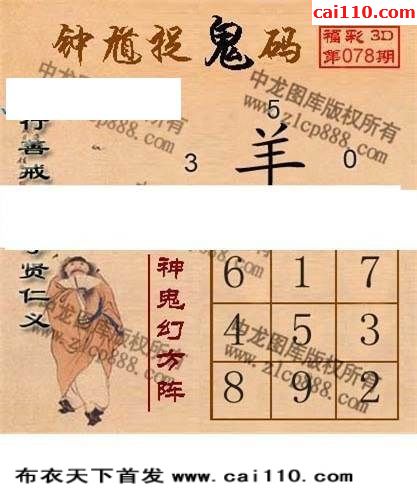 cai110.com
钟馗捉鬼码
福彩 3D
第078期
中龙图库版权所有
www.zlcp888.com
行善戒
5
3 羊 0
贤仁义
神鬼幻方阵
6 1 7
4 5 3
8 9 2
中龙图库版权所有
www.zlcp888.com
布衣天下首发 www.cai110.com